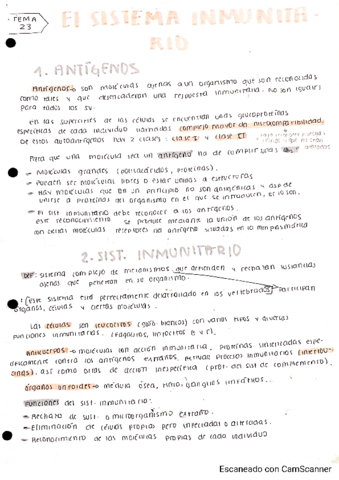 TEMA 23
El SISTEMA INMUNITA-
RIO
1. ANTÍGENOS
Antígenos son moléculas ajenas a un organismo que son reconocidas
como tales y que desencadenan una respuesta inmunitaria. No son iguales
para todos los sv.
en las superficies de las células se encuentran unas glucoproteínas
específicas de cada individuo llamadas complejo mayor de histocompatibilidad,
De estos autoantígenos hay 2 clases: clase I y clase II
Para que una molécula sea un antígeno ha de cumplir unas
- Moléculas grandes (polisacáridos, proteínas).
- Pueden ser moléculas libres o estar unidas a estructuras
- Hay moléculas que en un principio no son antigénicas y que de
unirse a proteínas del organismo en el que se introducen, lo son.
- El sist inmunitario debe reconocer a los antígenos.
este reconocimiento se produce mediante la unión de los antígenos
con ciertas moléculas receptores no antigénica situadas en la memb plasmática
2. SIST. INMUNITARIO
DEF: sistema complejo de mecanismos que defienden y rechazan sustancias
ajenas que penetran en su organismo.
: este sistema está perfectamente desarrollado en los vertebrados, participan
órganos, células y ciertas moléculas.
Las células son leucocitos (glób. blancos) con varios tipos y diversas
funciones inmunitarias. (Fagocitos, linfocitos B y T).
Anticuerpos → moléculas con acción inmunitaria, proteínas sintetizadas espe-
cíficamente contra los antígenos extraños, activan procesos inmunitarios (interleu-
cinas), así como otras de acción inespecífica (prot. del sist de complemento).
órganos linfoides → médula ósea, timo, ganglios linfáticos...
Funciones del sist. inmunitario:
- Rechazo de sust. o microorganismo extraño.
- Eliminación de células propias pero infectadas o alteradas.
- Reconocimiento de las moléculas propias de cada individuo
Escaneado con CamScanner